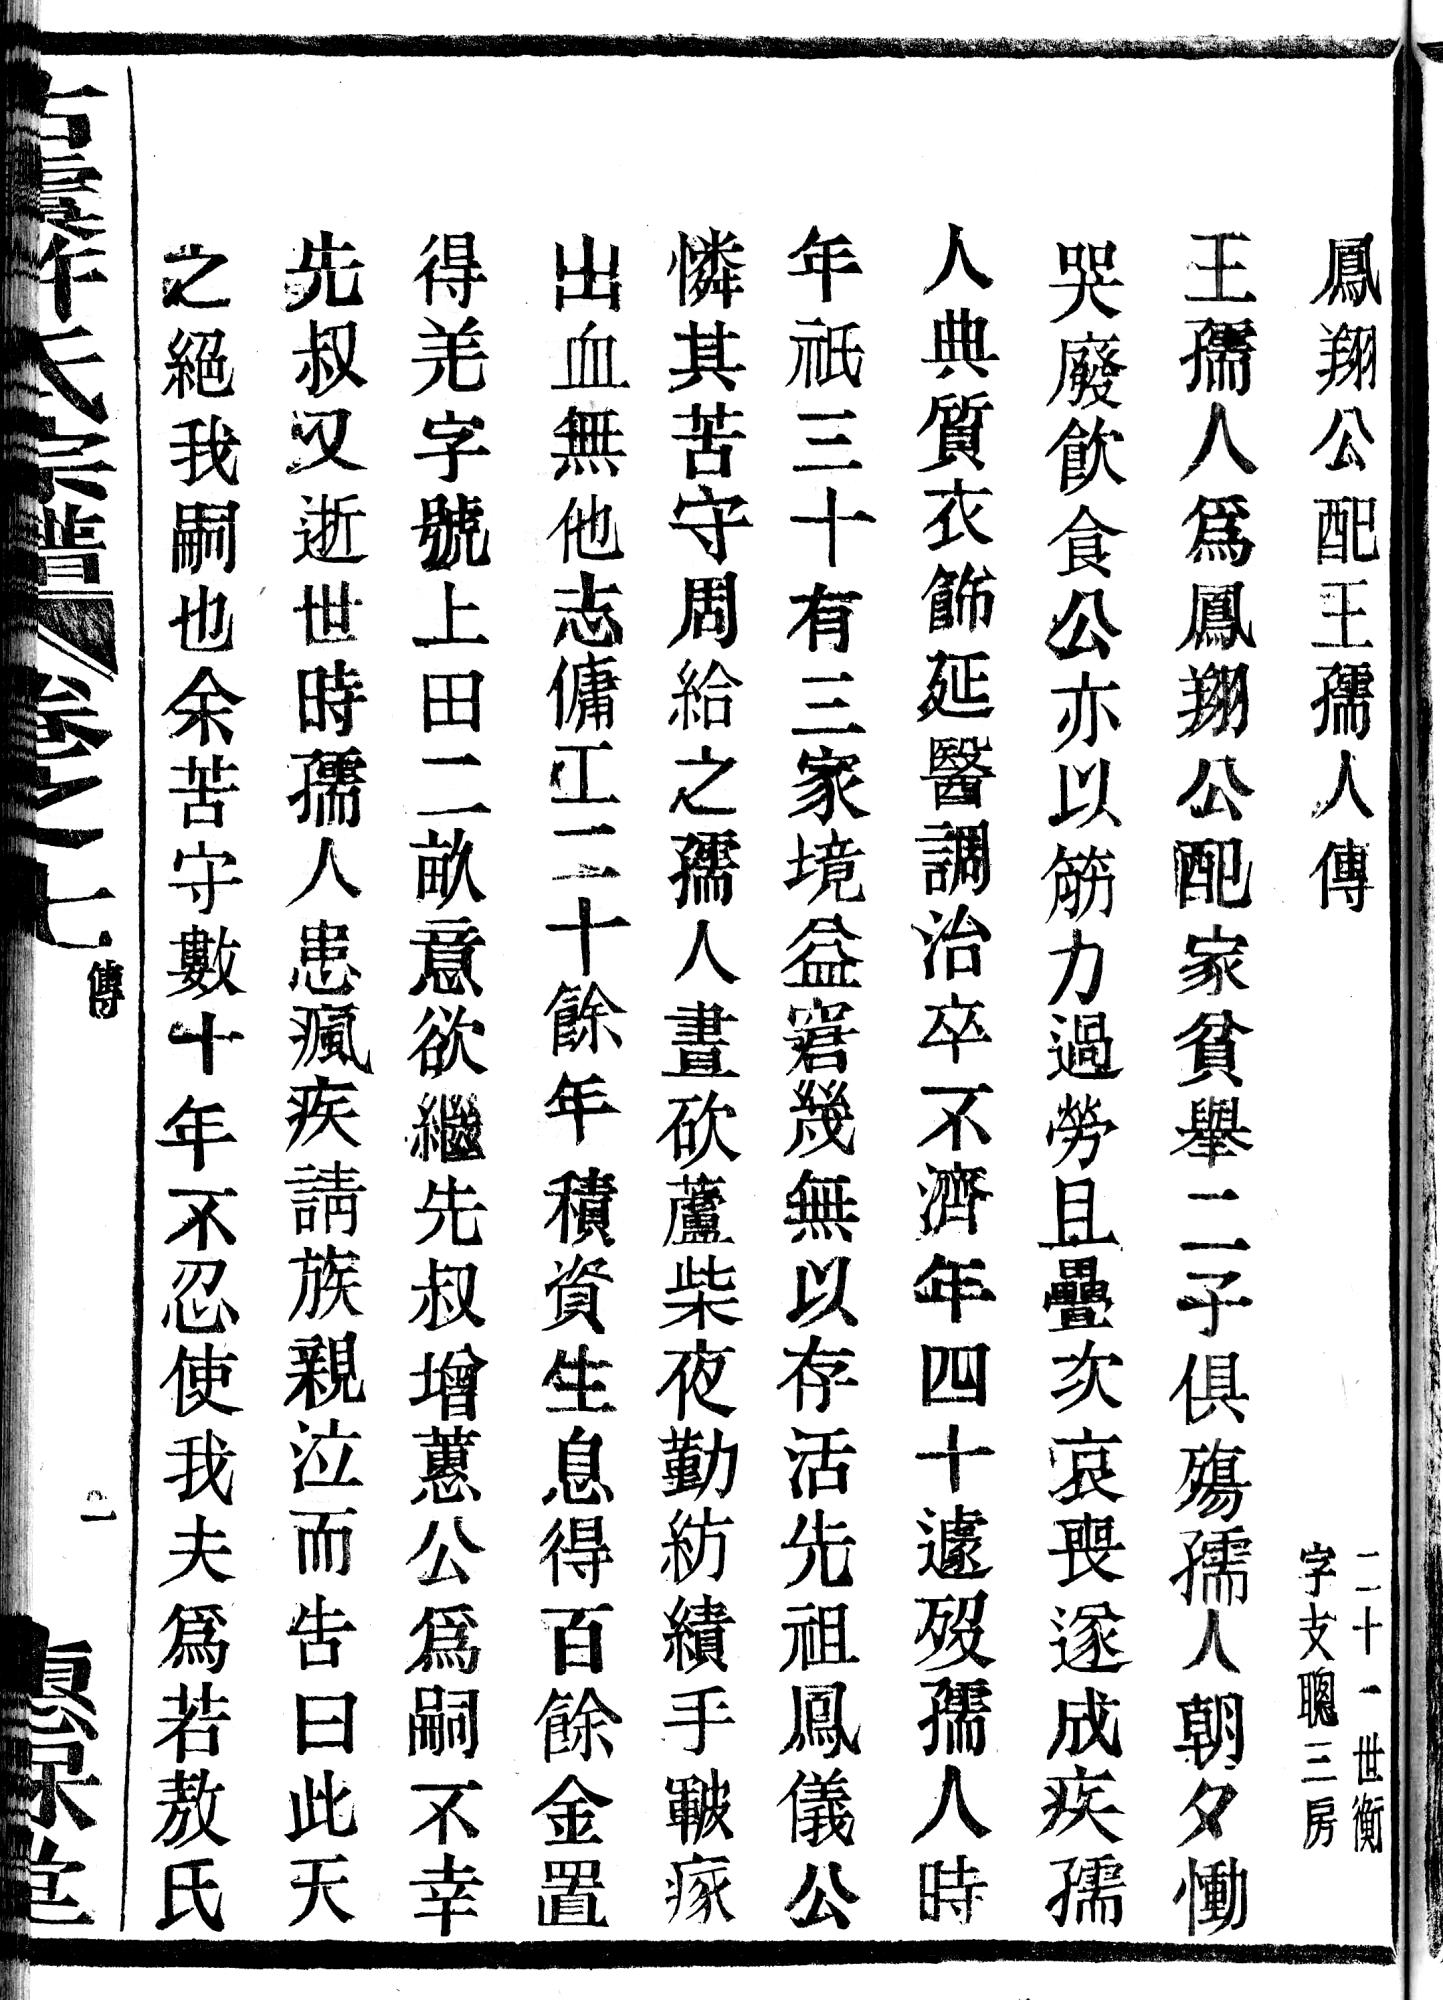 鳳翔公配王孺人傳
二十一世衡
字支聰三房
王孺人爲鳳翔公配家貧舉二子俱殤孺人朝夕慟
哭廢飲食公亦以筋力過勞且疊次哀喪遂成疾孺
人典質衣飾延醫調治卒不濟年四十遽歿孺人時
年祇三十有三家境益窘幾無以存活先祖鳳儀公
憐其苦守周給之孺人晝砍蘆柴夜勤紡績手皸瘃
出血無他志傭工二十餘年積資生息得百餘金置
得羌字號上田二畝意欲繼先叔增蕙公爲嗣不幸
先叔又逝世時孺人患瘋疾請族親泣而告曰此天
之絕我嗣也余苦守數十年不忍使我夫爲若敖氏
古虞許氏宗譜 卷之七 傳
惠保堂